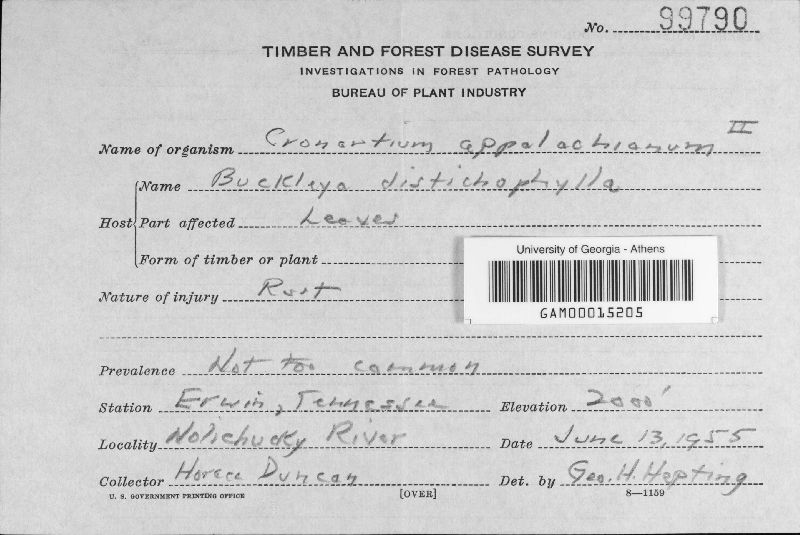 No. 99790
TIMBER AND FOREST DISEASE SURVEY
INVESTIGATIONS IN FOREST PATHOLOGY
BUREAU OF PLANT INDUSTRY
Name of organism Cronartium appalachianum II
Name Buckleya distichophylla
Host Part affected Leaves
Form of timber or plant
University of Georgia - Athens
GAM00015205
Nature of injury Rust
Prevalence Not too common
Station Erwin, Tennessee Elevation 2000'
Locality Nolichucky River Date June 13, 1955
Collector Horace Duncan Det. by Geo. H. Hepting
U. S. GOVERNMENT PRINTING OFFICE [OVER] 8—1159